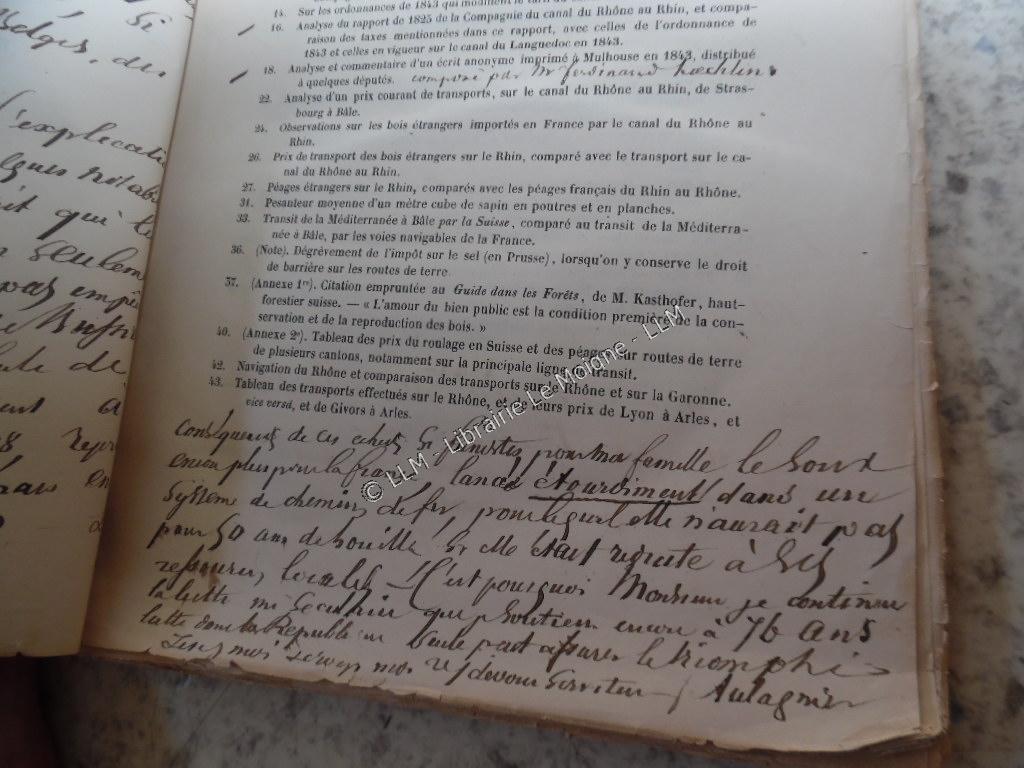 Si
Sedges, des
l'explication
lques notab
it qui le
seulem
pas empê
le
ule de
ent a
8 repor
en
14. Sur les ordonnances de 1843 qui modifient le tarif du
16. Analyse du rapport de 1825 de la Compagnie du canal du Rhône au Rhin, et compa-
raison des taxes mentionnées dans ce rapport, avec celles de l'ordonnance de
1843 et celles en vigueur sur le canal du Languedoc en 1843.
18. Analyse et commentaire d'un écrit anonyme imprimé à Mulhouse en 1843, distribué
à quelques députés. composé par Mr ferdinand Koechlin
22. Analyse d'un prix courant de transports, sur le canal du Rhône au Rhin, de Stras-
bourg à Bâle.
24. Observations sur les bois étrangers importés en France par le canal du Rhône au
Rhin.
26. Prix de transport des bois étrangers sur le Rhin, comparé avec le transport sur le ca-
nal du Rhône au Rhin.
27. Péages étrangers sur le Rhin, comparés avec les péages français du Rhin au Rhône.
31. Pesanteur moyenne d'un mètre cube de sapin en poutres et en planches.
33. Transit de la Méditerranée à Bâle par la Suisse, comparé au transit de la Méditerra-
née à Bâle, par les voies navigables de la France.
36. (Note). Dégrèvement de l'impôt sur le sel (en Prusse), lorsqu'on y conserve le droit
de barrière sur les routes de terre
37. (Annexe 1re). Citation empruntée au Guide dans les Forêts, de M. Kasthofer, haut-
forestier suisse. — « L'amour du bien public est la condition première de la con-
servation et de la reproduction des bois. »
40. (Annexe 2e). Tableau des prix du roulage en Suisse et des péages sur routes de terre
de plusieurs cantons, notamment sur la principale ligne de transit.
42. Navigation du Rhône et comparaison des transports sur le Rhône et sur la Garonne.
43. Tableau des transports effectués sur le Rhône, et de leurs prix de Lyon à Arles, et
vice versâ, et de Givors à Arles.
conséquences de ces echecs si sinistres pour ma famille le sont
encore plus pour la france lancée étourdiment dans un
système de chemins de fer pour lequel elle n'aurait pas
pour 50 ans de houille si elle était réduite à ses
ressources locales. C'est pourquoi Monsieur je continue
la lutte mi séculaire que je soutiens encore à 76 ans
lutte dont la République seule peut assurer le triomphe
votre dévoué serviteur Aulagnier
© LLM - Librairie Le Moione - LLM